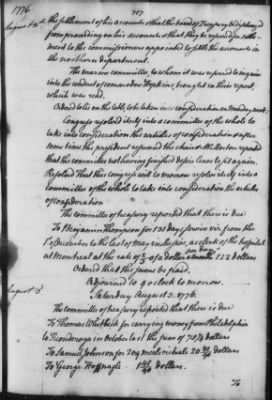 1776
August 2d
the settlement of his accounts & that the board of Treasury be discharged
from proceeding on his accounts & that they be referred for settle-
ment to the commissioners appointed to settle the accounts in
the northern department.
The marine committee, to whom it was referred to inquire
into the conduct of commodore Hopkins, brought in their report,
which was read.
Ordered to lie on the table, to be taken into consideration on Monday next.
Congress resolved itself into a committee of the whole to
take into consideration the articles of confederation & after
some time the president resumed the chair & Mr. Morton reported
that the committee not having finished desire leave to sit again.
Resolved That this Congress will to morrow resolve itself into a
committee of the whole to take into consideration the articles
of confederation
The committee of treasury reported that there is due
To Benjamin Thompson for 131 days service viz from the
1st December to the last of May inclusive, as clerk of the hospital
at Montreal at the rate of 2/3 of a dollar a day 122 dollars
Ordered that the same be paid.
Adjourned to 9 o clock to morrow.
August 3d
Saturday August 3. 1776.
The committee of treasury reported that there is due
To Thomas Whitbeck for carrying money from Philadelphia
to Ticonderoga in October last the sum of dollars
To Samuel Johnson for 309 meals victuals 20 dollars
To George Hofnagle dollars
To